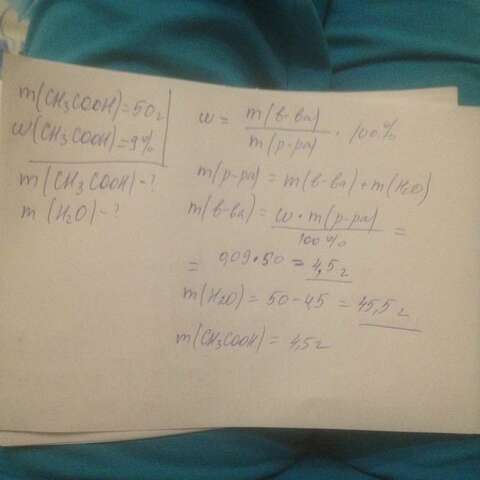 m(CH₃COOH)=50г
w(CH₃COOH)=9%
m(CH₃COOH)-?
m (H₂O)-?
w= m(в-ва)/m(р-ра) · 100%
m(р-ра) = m(в-ва)+m(H₂O)
m(в-ва) = w·m(р-ра)/100% =
= 0,09·50 = 4,5г
m(H₂O) = 50-4,5 = 45,5г
m(CH₃COOH) = 4,5г